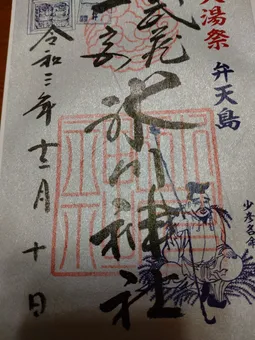 大湯祭
弁天島
武蔵
一宮
氷川神社
令和三年十二月十日
少彦名命